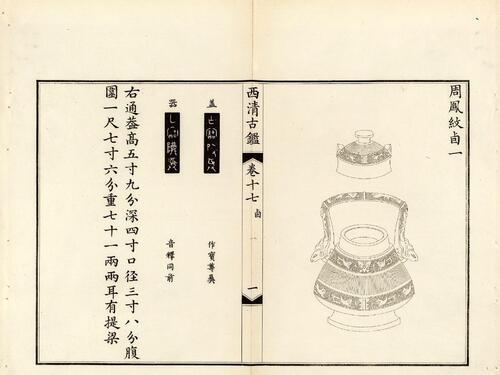 周鳳紋卣一
西清古鑑 卷十七 卣 一
葢
作寶尊彝
器
音釋同前
右通葢高五寸九分深四寸口徑三寸八分腹
圍一尺七寸六分重七十一兩兩耳有提梁